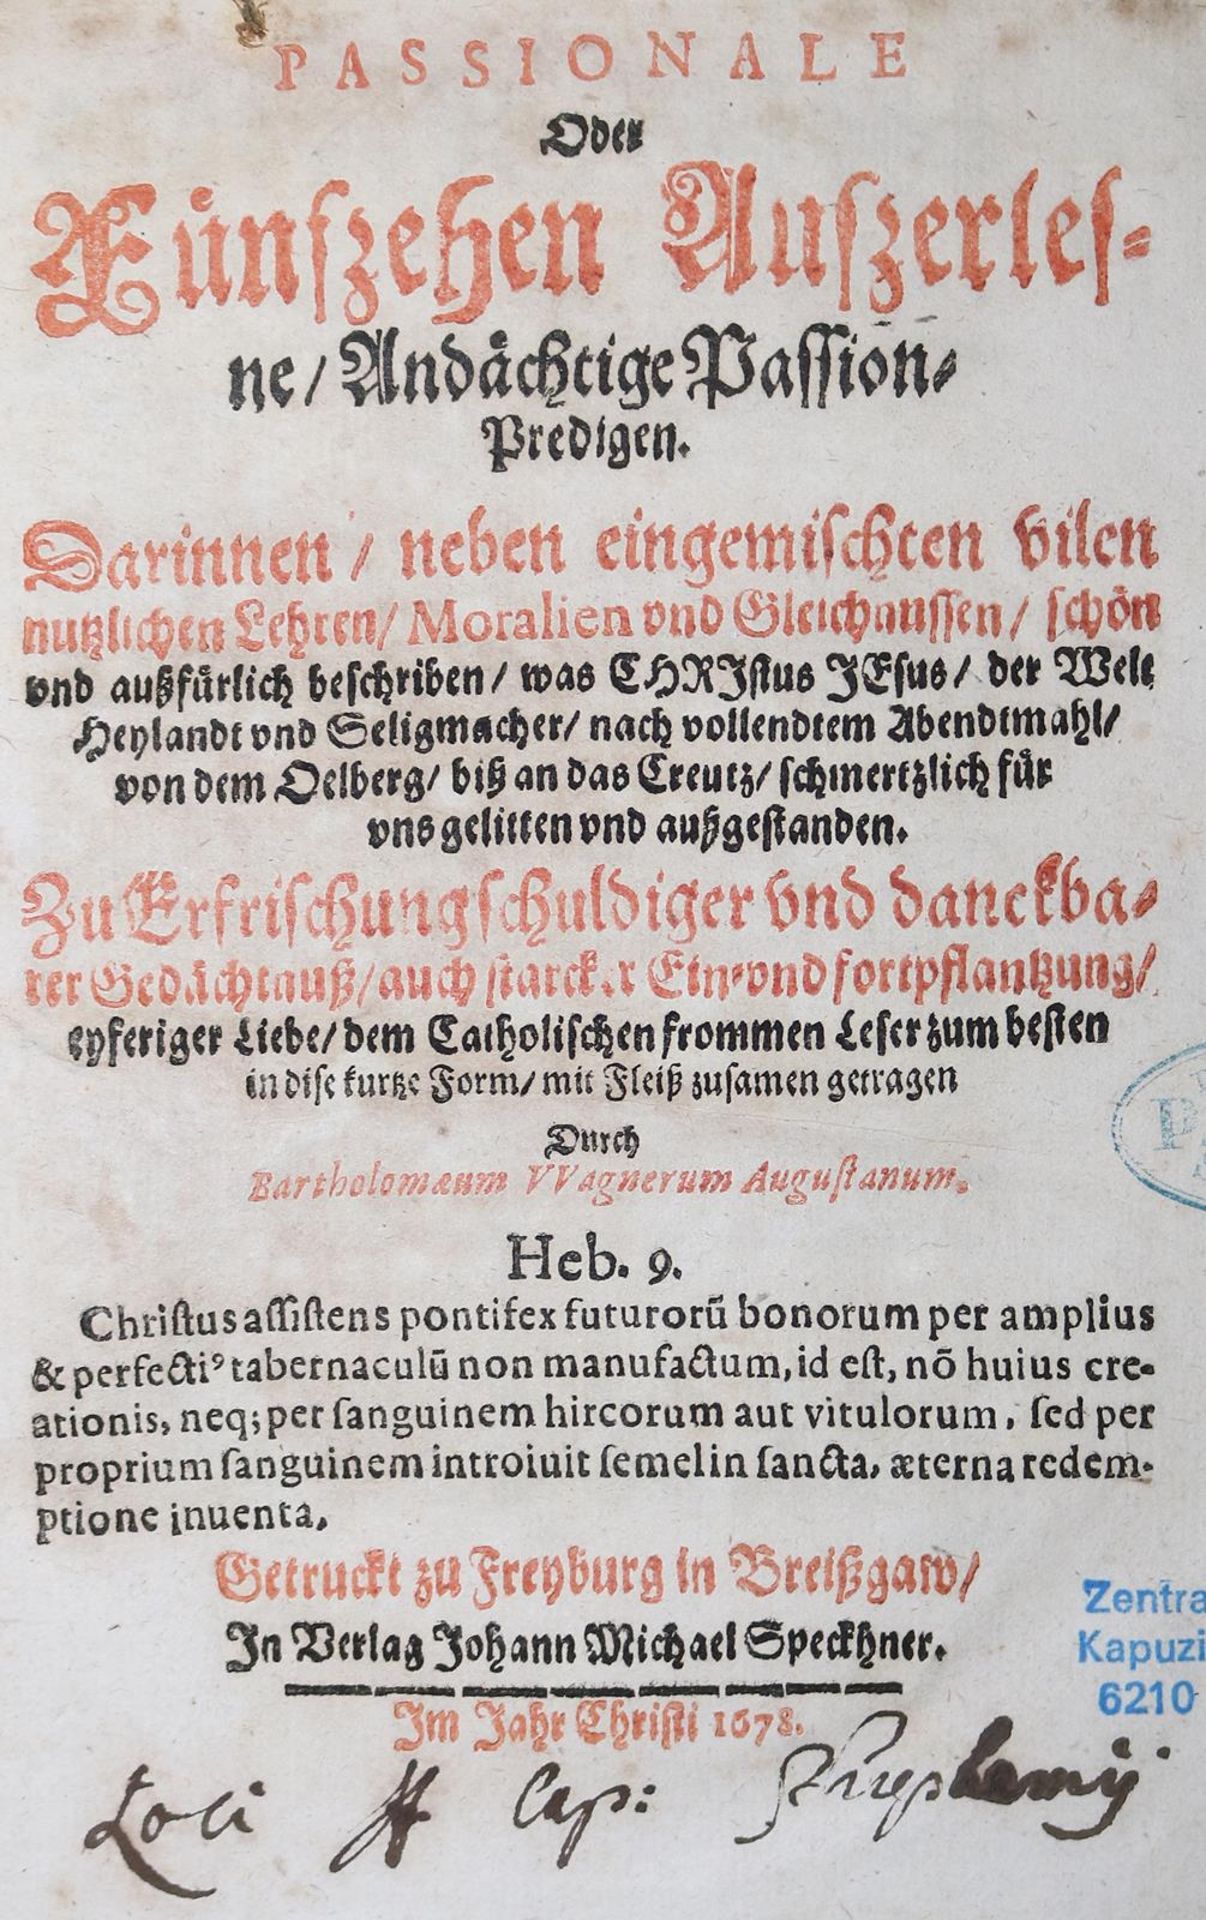 PASSIONALE
Oder
Fůnfzehen Auſzerleſ-
ne / Andåchtige Paſſion-
Predigen.
Darinnen / neben eingemiſchten vilen
nutzlichen Lehren / Moralien vnd Gleichnuſſen / ſchön
vnd außfůrlich beſchriben / was CHRIſtus JEſus / der Welt
Heylandt vnd Seligmacher / nach vollendtem Abendtmahl /
von dem Oelberg / biß an das Creutz / ſchmertzlich fůr
vns gelitten vnd außgeſtanden.
Zu Erfriſchung ſchuldiger vnd danckba-
rer Gedåchtnuß / auch ſtarcker Ein- vnd fortpflantzung /
eyferiger Liebe / dem Catholiſchen frommen Leſer zum beſten
in diſe kurtze Form / mit Fleiß zuſamen getragen
Durch
Bartholomæum VVagnerum Auguſtanum.
Heb. 9.
Chriſtus aſſiſtens pontifex futurorũ bonorum per amplius
& perfectiꝰ tabernaculũ non manufactum, id eſt, nõ huius cre-
ationis, neq; per ſanguinem hircorum aut vitulorum, ſed per
proprium ſanguinem introiuit ſemel in ſancta, æterna redem-
ptione inuenta.
Getruckt zu Freyburg in Breißgaw /
In Verlag Johann Michael Speckhner.
Im Jahr Chriſti 1678.
Loci ff Cap:
Zentra
Kapuzi
6210